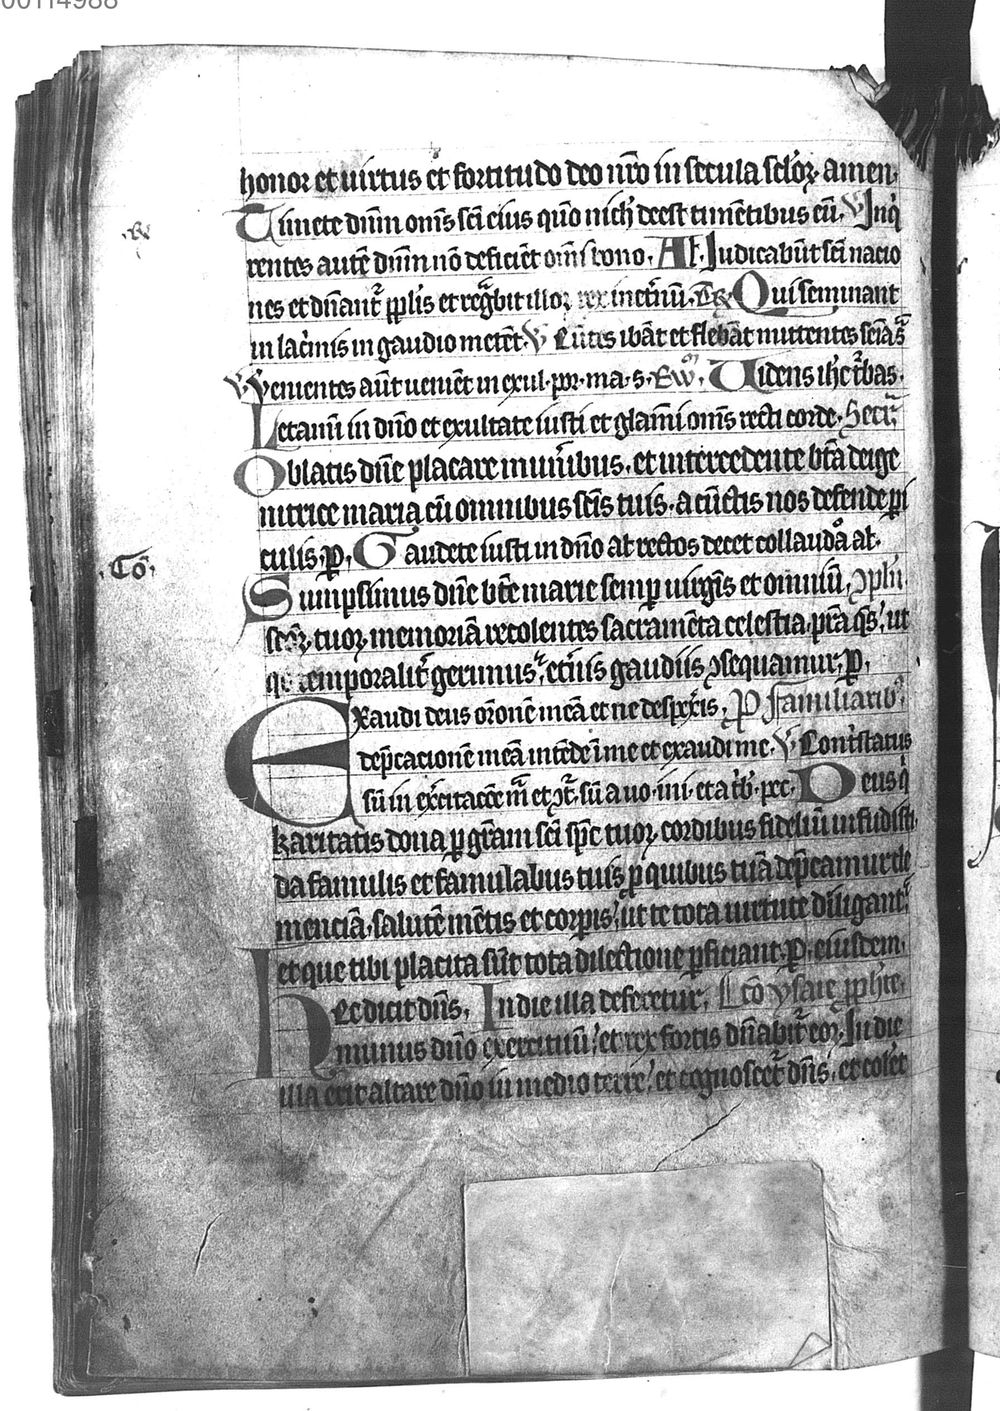 00114988
honor et uirtus et fortitudo deo nr̄o in secula sclōꝝ amen,
Timete dn̄m om̄s sc̄i eius qm̄o nich' deest timētibus eū. ℣ Inq̇
rentes autē dn̄m nō deficiēt om̄i bono. Al'. Judicabūt sc̄i nacio
nes et dn̄ant᷑ pp̄lis et regͣbit illoꝝ rex in et̄nū. Qui seminant
in lac̄mis in gaudio metēt. ℣ Eūtes ibāt et flebāt mittentes semīa s᷑
℣ Venientes aūt ueniēt in exul. por. ma. s. Ew̄. Uidens ihc̄ t̄bas.
Letami in dn̄o et exultate iusti et glam̄i om̄s recti corde. Secr᷑
Oblatis dn̄e placare mun̄ibus. et intercedente bt̄a dei ge
nitrice maria cū omnibus sc̄is tuis. a cūctis nos defende pi
culis. ꝑ. Gaudete iusti in dn̄o at rectos decet collaudꝰ al'.
.Cō.
Sumpsimus dn̄e bt̄e marie semꝑ uirgīs et omniū ꝯplm̄
sc̄oꝝ tuoꝝ memoriā recolentes sacramēta celestia. pr̄a qs̄, ut
qd temporalit᷑ gerimus, et̄nis gaudiis ꝯsequamur. ꝑ.
Exaudi deus or̄onē meā et ne despex̄is, P Familiarib᷒
dep̄cacionē meā intēde i me et exaudi me. ℣ Contristatus
sū in ex̄citac̄oē m̄ et ꝯt᷑. sū a uo. ini. et a t̄b. pec. Deus q̇
karitatis dona ꝑ gr̄am sc̄i sp̄c tuoꝝ cordibus fideliū infudisti
da famulis et famulabus tuis ꝑ quibus tuā dep̄camur cle
menciā. salutē mētis et corꝑis, ut te tota uirtute diligant᷑
et que tibi placita sūt tota dilectione ꝑficiant. ꝑ. eiusdem.
Hec dicit dn̄s. In die illa deferetur, Lc̄o ysaie ꝓphe͛te,
munus dn̄o exercituū, et rex fortis dn̄abit᷑ eoꝝ. In die
illa erit altare dn̄o in medio terre, et cognoscet᷑ dn̄s, et colēt